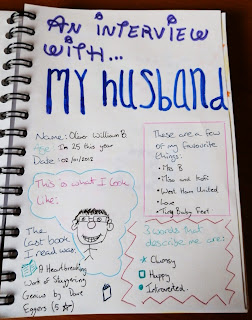 AN INTERVIEW
WITH...
MY husband
Name: Oliver William B.
Age: I'm 25 this year
Date: 02/01/2012
These are a few
of my favourite
things:
• Mrs B
• Miso and Kofi
• West Ham United
• Love
• Tiny Baby Feet
This is what I look
like:
The
last book
I read was:
A Heartbreaking
Work of Staggering
Genius by Dave
Eggers (5 ☆)
3 words that
describe me are:
Clumsy
Happy
Introverted.